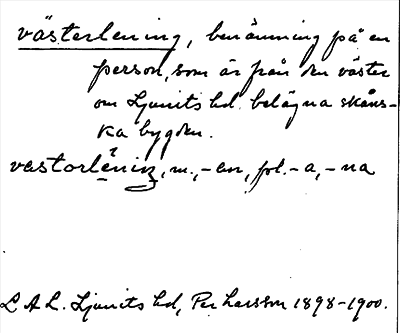 västerlening, benämning på en
person, som är från den väster
om Ljunits hd. belägna skåns-
ka bygden.
vastorlening, m., -en, pl. -a, -na
L A L. Ljunits hd, Per Larsson 1898-1900.